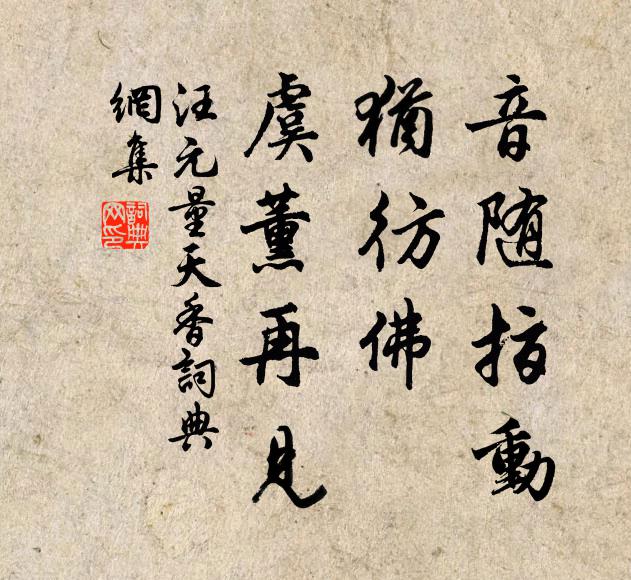 音随指動
猶彷佛
虞薰再見
汪元量天香詞典
網集
詞典
网印